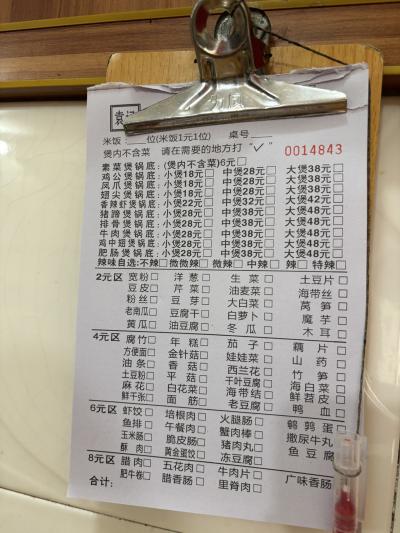 袁记
米饭____位(米饭1元1位) 桌号____
煲内不含菜 请在需要的地方打“✓” 0014843
素菜煲锅底:(煲内不含菜)6元□
鸡公煲锅底:小煲18元□ 中煲28元□ 大煲38元□
凤爪煲锅底:小煲18元□ 中煲28元□ 大煲38元□
翅尖煲锅底:小煲18元□ 中煲28元□ 大煲38元□
香辣虾煲锅底:小煲22元□ 中煲32元□ 大煲42元□
猪蹄煲锅底:小煲28元□ 中煲38元□ 大煲48元□
排骨煲锅底:小煲28元□ 中煲38元□ 大煲48元□
牛肉煲锅底:小煲28元□ 中煲38元□ 大煲48元□
鸡中翅煲锅底:小煲28元□ 中煲38元□ 大煲48元□
肥肠煲锅底:小煲28元□ 中煲38元□ 大煲48元□
辣味自选:不辣□ 微微辣□ 微辣□ 中辣□ 辣□ 特辣□
2元区 宽粉□ 洋葱□ 生菜□ 土豆片□
豆皮□ 芹菜□ 油麦菜□ 海带丝□
粉丝□ 豆芽□ 大白菜□ 莴笋□
老南瓜□ 豆腐干□ 白萝卜□ 魔芋□
黄瓜□ 油豆腐□ 冬瓜□ 木耳□
4元区 腐竹□ 年糕□ 茄子□ 藕片□
方便面□ 金针菇□ 娃娃菜□ 山药□
油条□ 香菇□ 西兰花□ 竹笋□
土豆粉□ 平菇□ 千叶豆腐□ 海白菜□
麻花□ 白花菜□ 海带结□ 鲜苔皮□
鲜千张□ 面筋□ 老豆腐□ 鸭血□
6元区 虾饺□ 培根肉□ 火腿肠□ 鹌鹑蛋□
鱼排□ 午餐肉□ 蟹肉棒□ 撒尿牛丸□
玉米肠□ 脆皮肠□ 猪肉丸□ 鱼豆腐□
酥肉□ 黄金蛋饺□ 冻豆腐□
8元区 腊肉□ 五花肉□ 牛肉片□ 广味香肠□
肥牛卷□ 腊香肠□ 里脊肉□
合计: